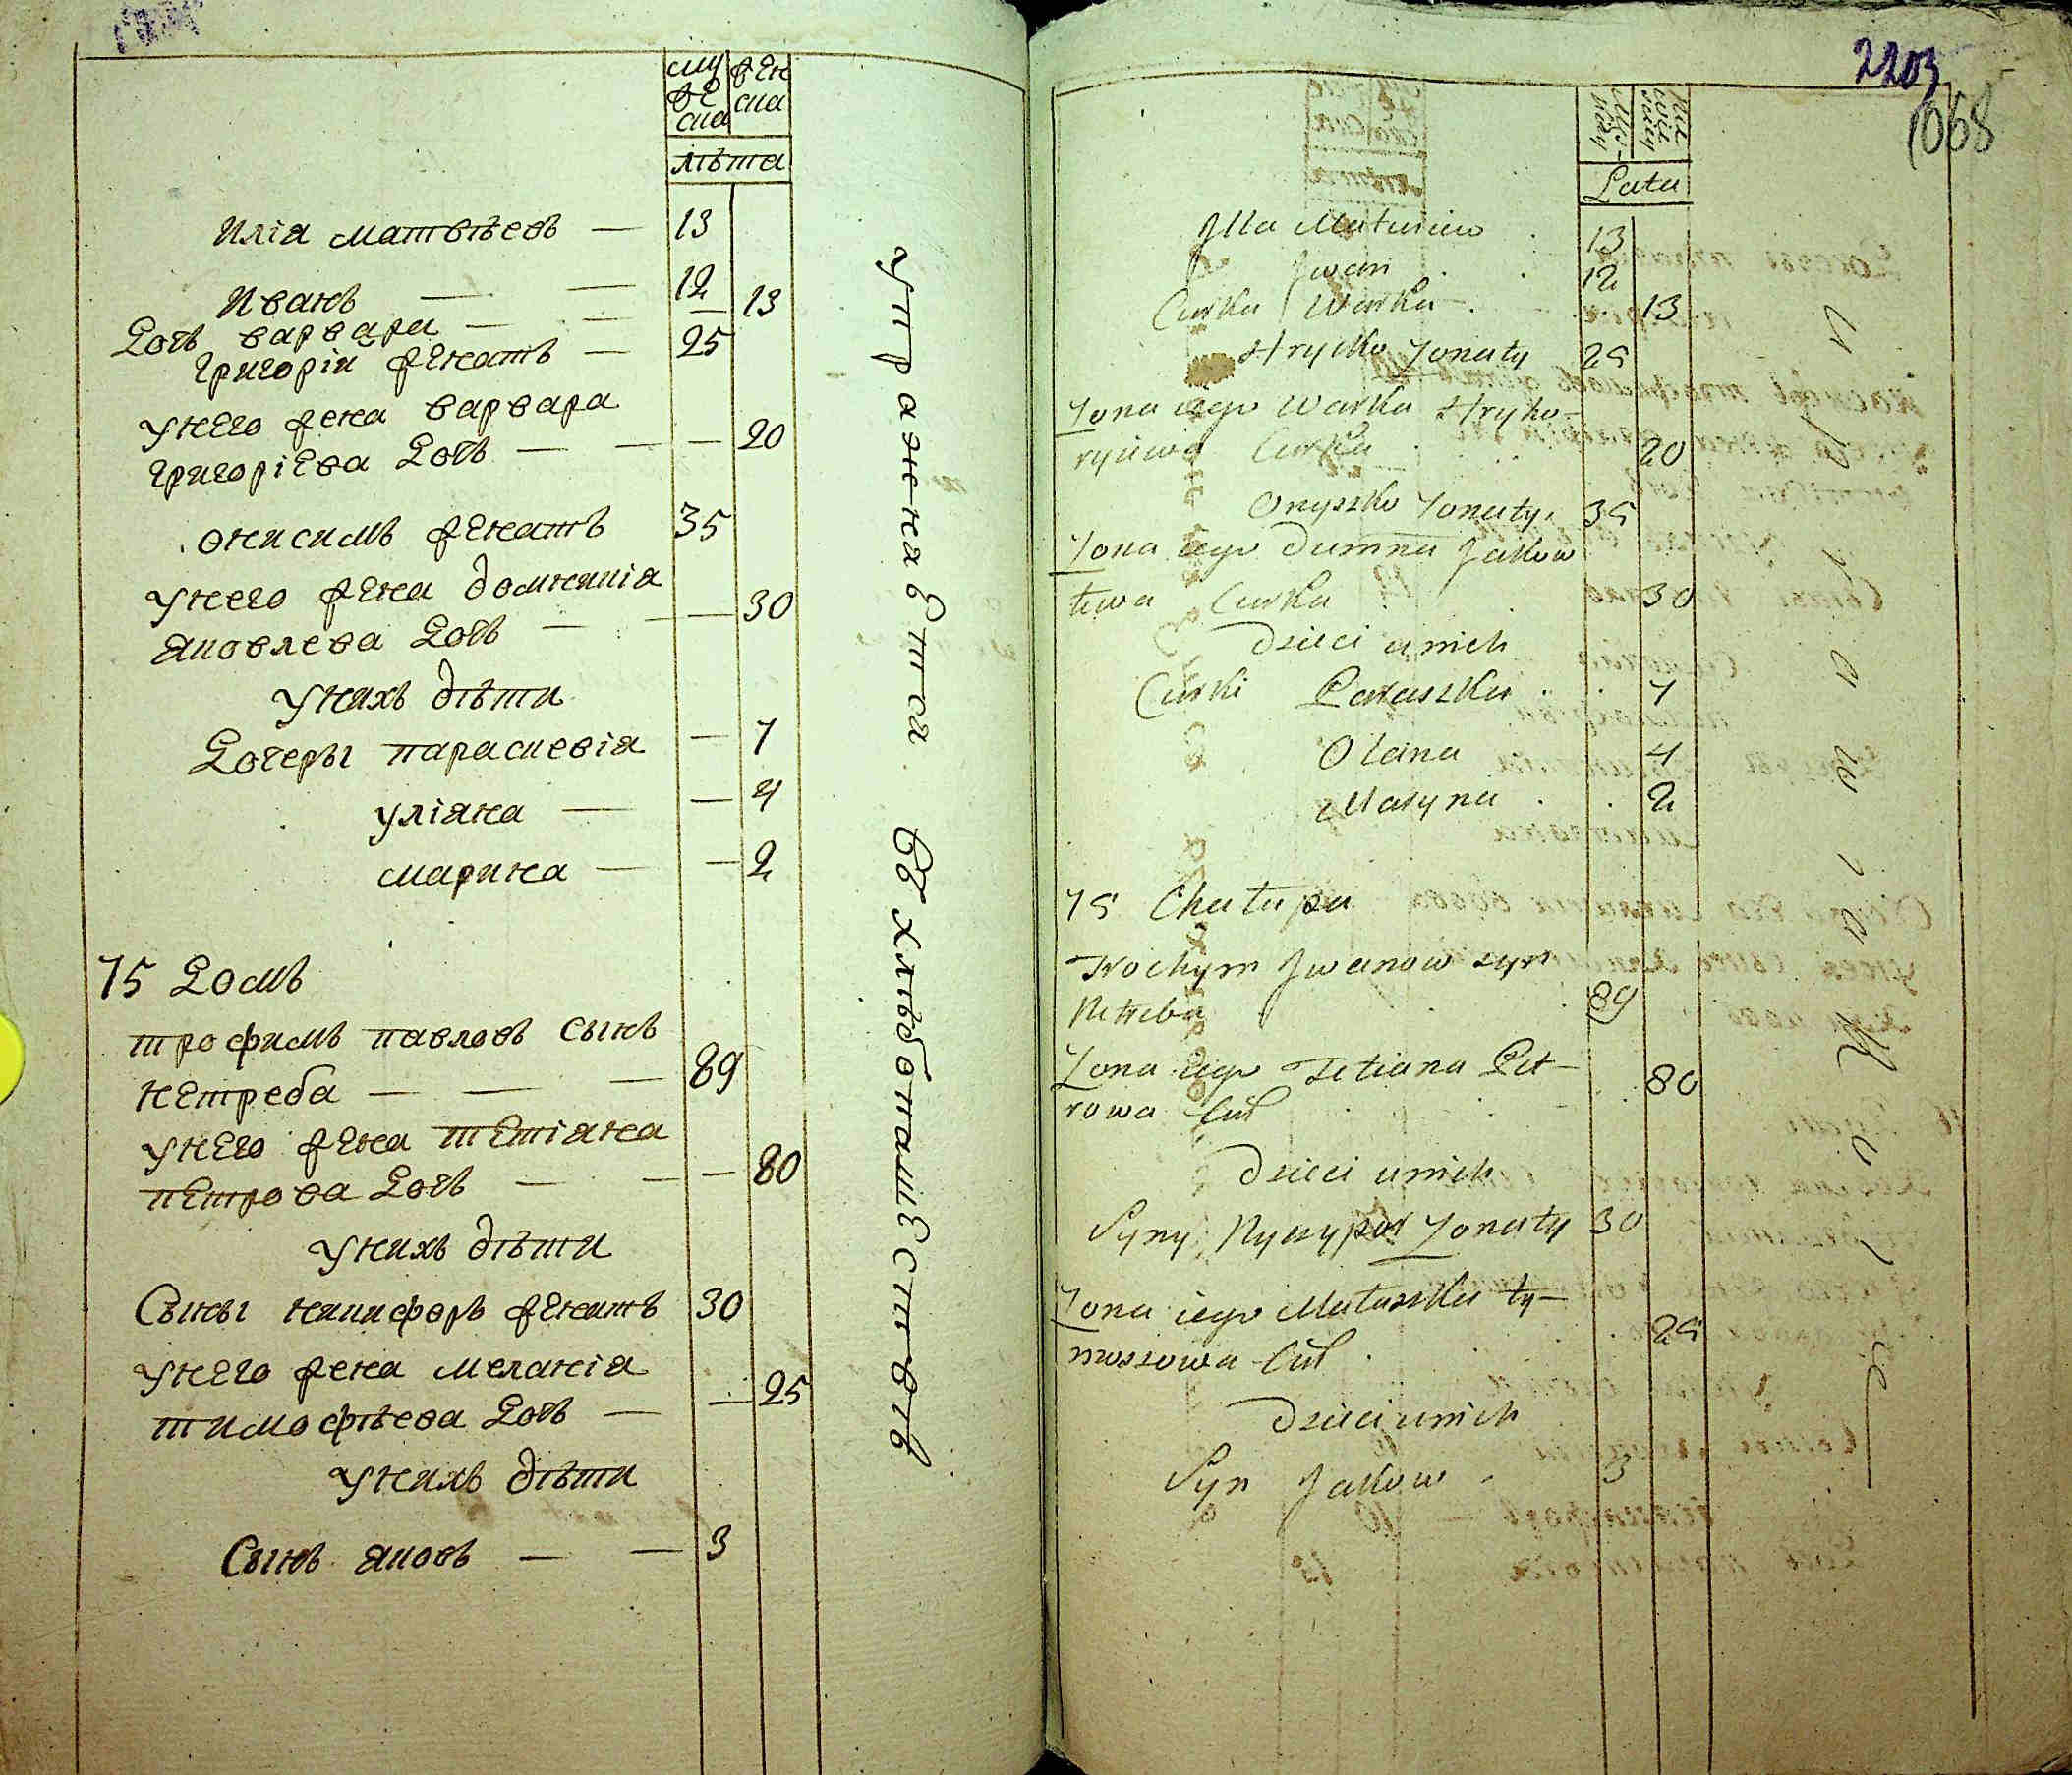 му
же
ска
жен
ска
лѣта
илiа матвѣевъ — 13
иванъ — — 12
Дочь варвара — — — 13
григорiи женатъ — 25
унего жена варвара
григорiева Дочь — — — 20
онисимъ женатъ 35
унего жена домникiа
яковлева Дочь — — — 30
унихъ дѣти
Дочеры параскевiа — 7
улiяна — — 4
марина — — 2
75 Домъ
трофимъ павловъ сынъ
нетреба — — — 89
унего жена тетiяна
петрова Дочь — — — 80
унихъ дѣти
Сыны никифоръ женатъ 30
унего жена меланiа
тимофѣева Дочь — — 25
унихъ дѣти
Сынъ яковъ — — 3
упражнавтся вхлѣбопашествѣ
2203
1068
Lata
Illa Matwiiew . 13
Jwan . . 12
Curka Warka . . . 13
Hrycko Zonaty 25
Zona iego Warka Hryho-
ryiewa Curka . 20
Onyszko Zonaty. 35
Zona iego Dumna Jakow
lewa Curka . 30
Dzieci unich
Curki Paraszka . . 7
Olana 4
Maryna . . 2
75 Chatupa
Trochym Jwanow syn
Netreba . . 89
Zona iego Tetiana Pet-
rowa Cur . . 80
Dzieci unich
Syny Nyczypor Zonaty 30
Zona iego Mataszka ty-
moszowa Cur . . 25
Dzieci unich
Syn Jakow . 3